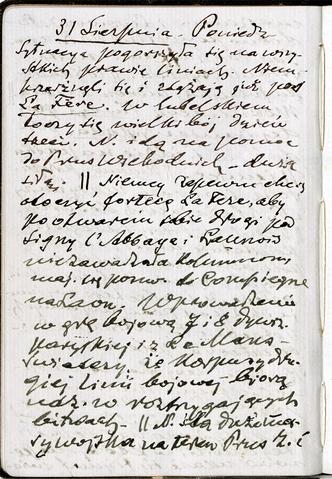 31 Sierpnia. Poniedz.
Sytuacya pogorszyła się na wszy-
stkich prawie liniach. Niem.
przeszli się i zbliżają już pod
La Fère. W lubelskiem
toczy się wielki bój dzień
trzeci. N. idą na pomoc
do Prus Wschodnich – dużą
siłą. || Niemcy zapewne chcą
otoczyć fortecę La Fère, aby
po otwarciu sobie drogi pod
Signy l'Abbaye i Launois
nie zawadzała kolumnom
maj. do Compiègne
na Laon. Wprowadzenie
w grę bojową 7 i 8 dywiz.
paryskiej i z Le Mans
świadczy, że korpusy dru-
giej linii bojowej biorą
udz. w rozstrzygających
bitwach. || N. ślą dużo ma-
sy wojska na teren Prus Z. i